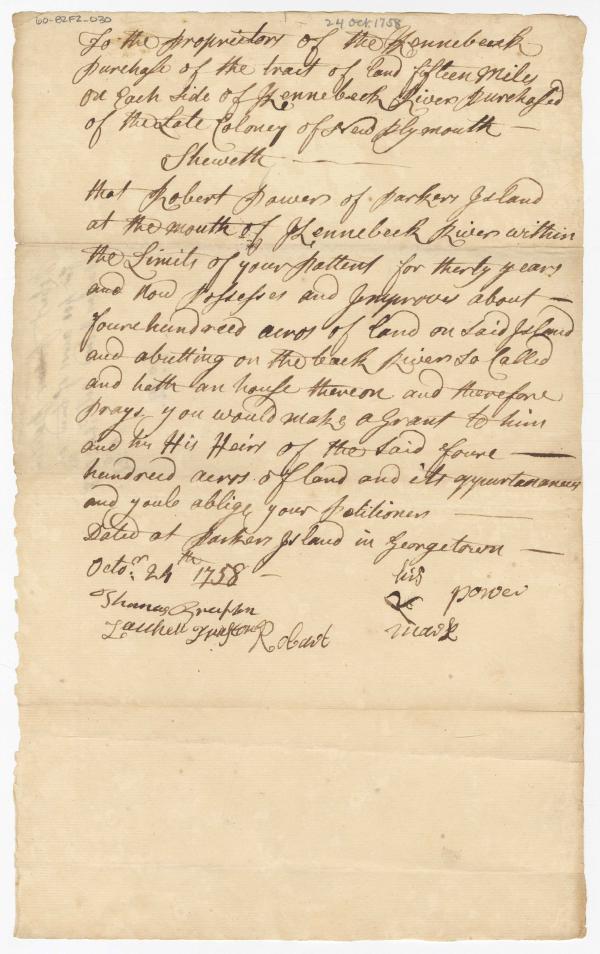 60-82F2-030
24 Oct. 1758
To the Proprietors of the Kennebeeck
Purchase of the tract of land fifteen Miles
on Each Side of Kennebeck River Purchased
of the Late Coloney of New Plymouth
Sheweth
that Robert Powers of Parkers Island
at the mouth of Kennebeck River within
the Limits of your Pattent for therty years
and Now Possesses and Jmproves about
foure hundreed acros of land on Said Island
and abutting on the back River So Called
and hath an house thereon and therefore
Prays you would make a Grant to him
and his His Heirs of the Said foure
hundreed acros of land and its appurtanances
and youle ablige your Potitioners
Dated at Parkers Island in Georgetown
Octor. 24th 1758
his
Power
mark
Thomas
Robart